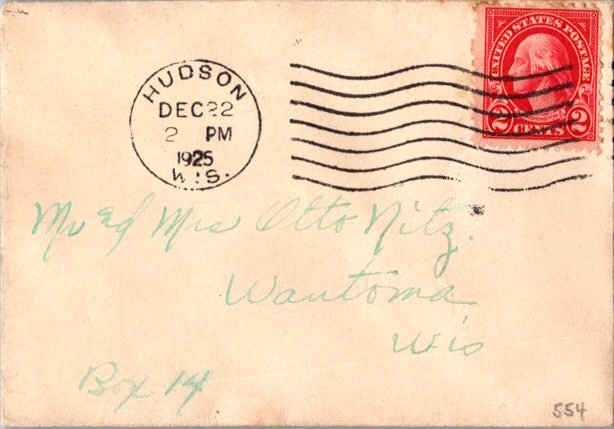 UNITED STATES POSTAGE
2 CENTS 2
HUDSON
DEC 22
2 PM
1925
WIS.
Mr & Mrs Otto Nitz.
Wautoma
Wis
Box 14
554